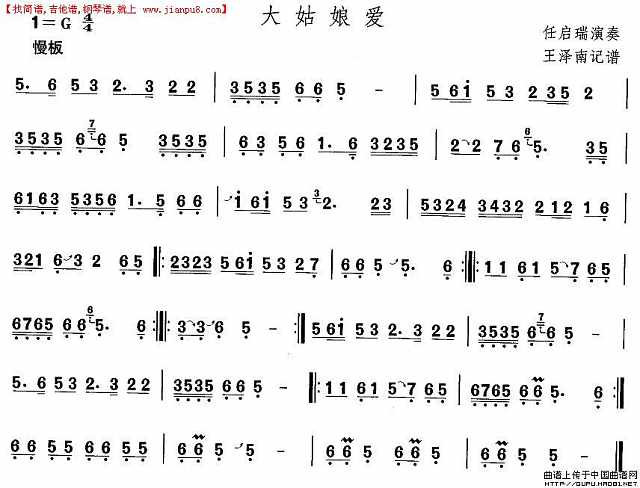 【找简谱,吉他谱,钢琴谱,就上 www.jianpu8.com】
大姑娘爱
1=G 4/4
任启瑞演奏
慢板
王泽南记谱
5. 6 5 3 2. 3 2 2 | 3535 6 6 5 - | 5 6i 5 3 2 235 2 |
3535 6 6 5 3535 | 6 3 5 6 1. 6 3235 | 2 2 7 6 5. 3 5 |
6163 5356 1. 5 6 6 | i 6i 5 3 2. 2 3 | 5324 3432 212 1 6 |
321 6 3 2 6 5 :‖: 2323 5 6i 5 3 2 7 | 6 6 5 5. 6 :‖: 1 1 6 1 5 7 6 5 |
6765 6 6 5. 6 :‖: 3 3 6 5 - :‖ 5 6i 5 3 2. 3 2 2 | 3535 6 6 5 - |
5. 6 5 3 2. 3 2 2 | 3535 6 6 5 - ‖: 1 1 6 1 5 7 6 5 | 6765 6 6 5. 6 :‖
6 6 5 5 6 6 5 5 | 6 6 5 - | 6 6 5 - | 6 6 5 - ‖
曲谱上传于中国曲谱网
HTTP://WWW.QUPU.HAODI.NET